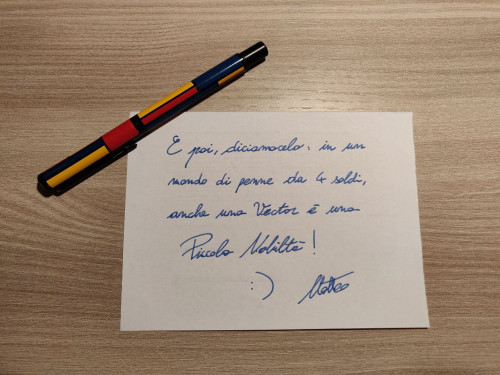 E poi, diciamocelo: in un
mondo di penne da 4 soldi,
anche una Vector è una
Piccola Nobiltà!
:)
Matteo